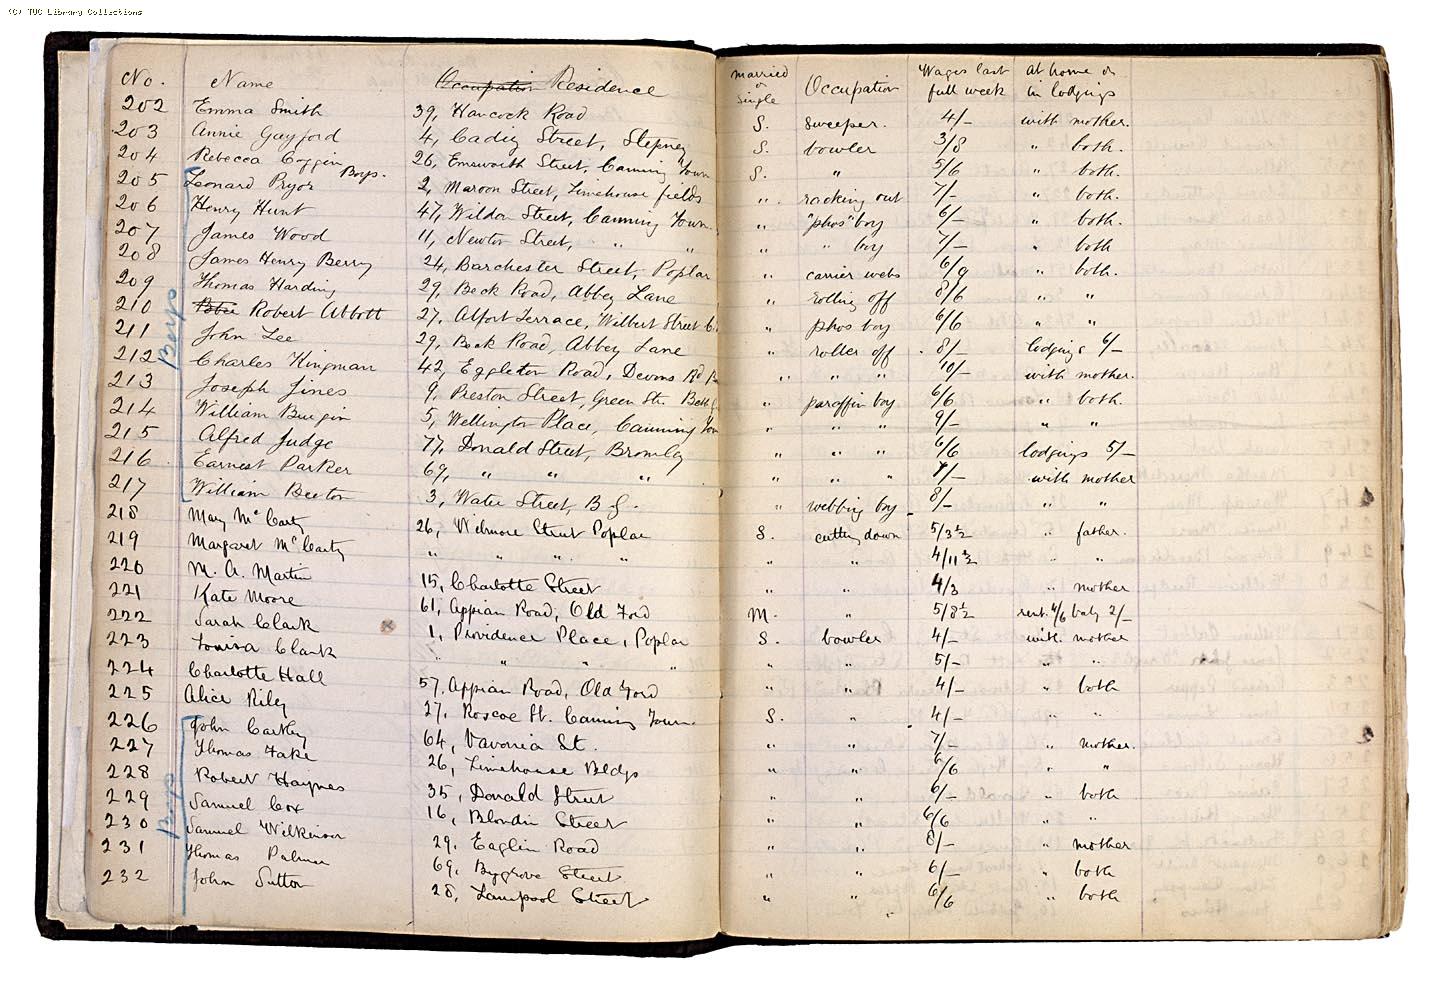 (C) TUC Library Collections
No. Name Occupation Residence married or single Occupation Wages last full week at home or in lodgings
202 Emma Smith 39, Hancock Road S. sweeper. 4/- with mother.
203 Annie Gayford 4, Cadiz Street, Stepney S. bowler 3/8 " both.
204 Rebecca Coggin 26, Emsworth Street, Canning Town S. " 5/6 " both.
Boys.
205 Leonard Pryor 2, Maroon Street, Limehouse fields " racking out 7/- " both.
206 Henry Hunt 47, Wildon Street, Canning Town " "phos" boy 6/- " both.
207 James Wood 11, Newton Street, " " " " boy 7/- " both
208 James Henry Berry 24, Barchester Street, Poplar " carrier webs 6/9 " both.
209 Thomas Harding 29, Beck Road, Abbey Lane " rolling off 8/6 " "
210 Robert Abbott 27, Alfort Terrace, Wilbert Street " phos boy 6/6 " "
211 John Lee 29, Beck Road, Abbey Lane " roller off 8/- lodgings 6/-
212 Charles Kingman 42, Eggleton Road, Devons Rd " " " 10/- with mother.
213 Joseph Jines 9, Preston Street, Green Str. " paraffin boy 6/6 " both.
214 William Burgin 5, Wellington Place, Canning " " " 9/- " "
215 Alfred Judge 77, Donald Street, Bromley " " " 6/6 lodgings 5/-
216 Earnest Parker 69, " " " " " " 7/- with mother
217 William Beeton 3, Water Street, B.G. " webbing boy 8/- " "
218 Mary McCarty 26, Wilmore Street Poplar S. cutting down 5/3½ " father.
219 Margaret McCarty " " " " " " 4/11½ " "
220 M. A. Martin 15, Charlotte Street " " 4/3 " mother
221 Kate Moore 61, Appian Road, Old Ford M. " 5/8½ rent. 4/6 baby 2/-
222 Sarah Clark 1, Providence Place, Poplar S. bowler 4/- with mother
223 Louisa Clark " " " " " " 5/- " "
224 Charlotte Hall 57, Appian Road, Old Ford " " 4/- " both
225 Alice Riley 27, Roscoe St. Canning Town S. " 4/- " "
226 John Carthy 64, Vavonia St. " " 7/- " mother.
227 Thomas Fake 26, Limehouse Bldgs " " 6/6 " "
228 Robert Haynes 35, Donald Street " " 6/- " both
229 Samuel Cox 16, Blondin Street " " 6/6 " "
230 Samuel Wilkinson 29, Eaglin Road " " 8/- " mother
231 Thomas Palmer 69, Bygrove Street " " 6/- " both
232 John Sutton 28, Lampool Street " " 6/6 " both
Boys
Boys